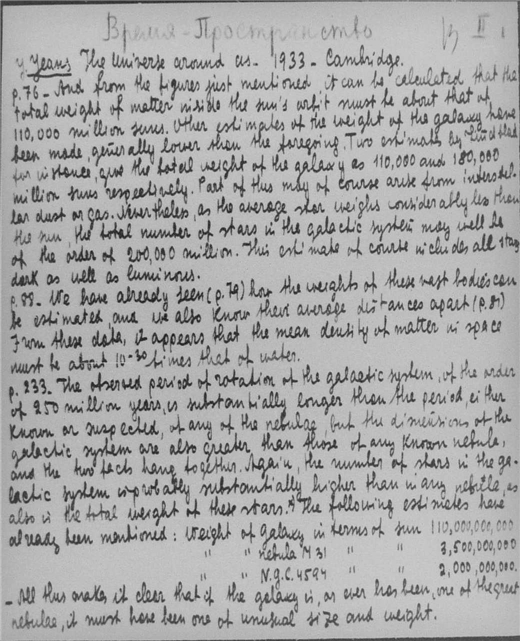 Время - Пространство
II 1
y Jeans The Universe around us - 1933 - Cambridge.
p. 76 - And from the figures just mentioned, it can be calculated that the
total weight of matter inside the sun's orbit must be about that of
110,000 million suns. Other estimates of the weight of the galaxy have
been made, generally lower than the foregoing. Two estimates by Lindblad
for instance, give the total weight of the galaxy as 110,000 and 180,000
million suns respectively. Part of this may of course arise from interstel-
lar dust or gas. Nevertheless, as the average star weighs considerably less than
the sun, the total number of stars in the galactic system may well be
of the order of 200,000 million. This estimate of course includes all stars
dark as well as luminous.
p. 88 - We have already seen (p. 79) how the weights of these vast bodies can
be estimated, and we also know their average distances apart (p. 81)
From these data, it appears that the mean density of matter in space
must be about 10-30 times that of water.
p. 233 - The observed period of rotation of the galactic system, of the order
of 250 million years, is substantially longer than the period, either
known or suspected, of any of the nebulae, but the dimensions of the
galactic system are also greater than those of any known nebula,
and the two facts hang together. Again, the number of stars in the ga-
lactic system is probably substantially higher than in any nebula, as
also is the total weight of these stars. The following estimates have
already been mentioned: Weight of galaxy in terms of sun 110,000,000,000
" " nebula M 31 " " 3,500,000,000
" " N.g.C. 4594 " " 2,000,000,000.
- All this makes it clear that if the galaxy is, or ever has been, one of the great
nebulae, it must have been one of unusual size and weight.